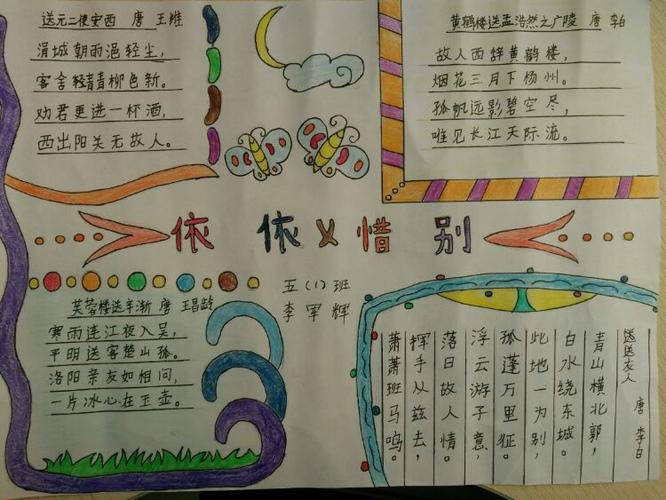 送元二使安西 唐 王维
涓城朝雨浥轻尘，
客舍轻青青柳色新。
劝君更进一杯酒，
西出阳关无故人。
黄鹤楼送孟浩然之广陵 唐 李白
故人西辞黄鹤楼，
烟花三月下杨州。
孤帆远影碧空尽，
唯见长江天际流。
依依惜别
五（1）班
李军辉
芙蓉楼送辛渐 唐 王昌龄
寒雨连江夜入吴，
平明送客楚山孤。
洛阳亲友如相问，
一片冰心在玉壶。
送友人 唐 李白
青山横北郭，
白水绕东城。
此地一为别，
孤蓬万里征。
浮云游子意，
落日故人情。
挥手从兹去，
萧萧班马鸣。